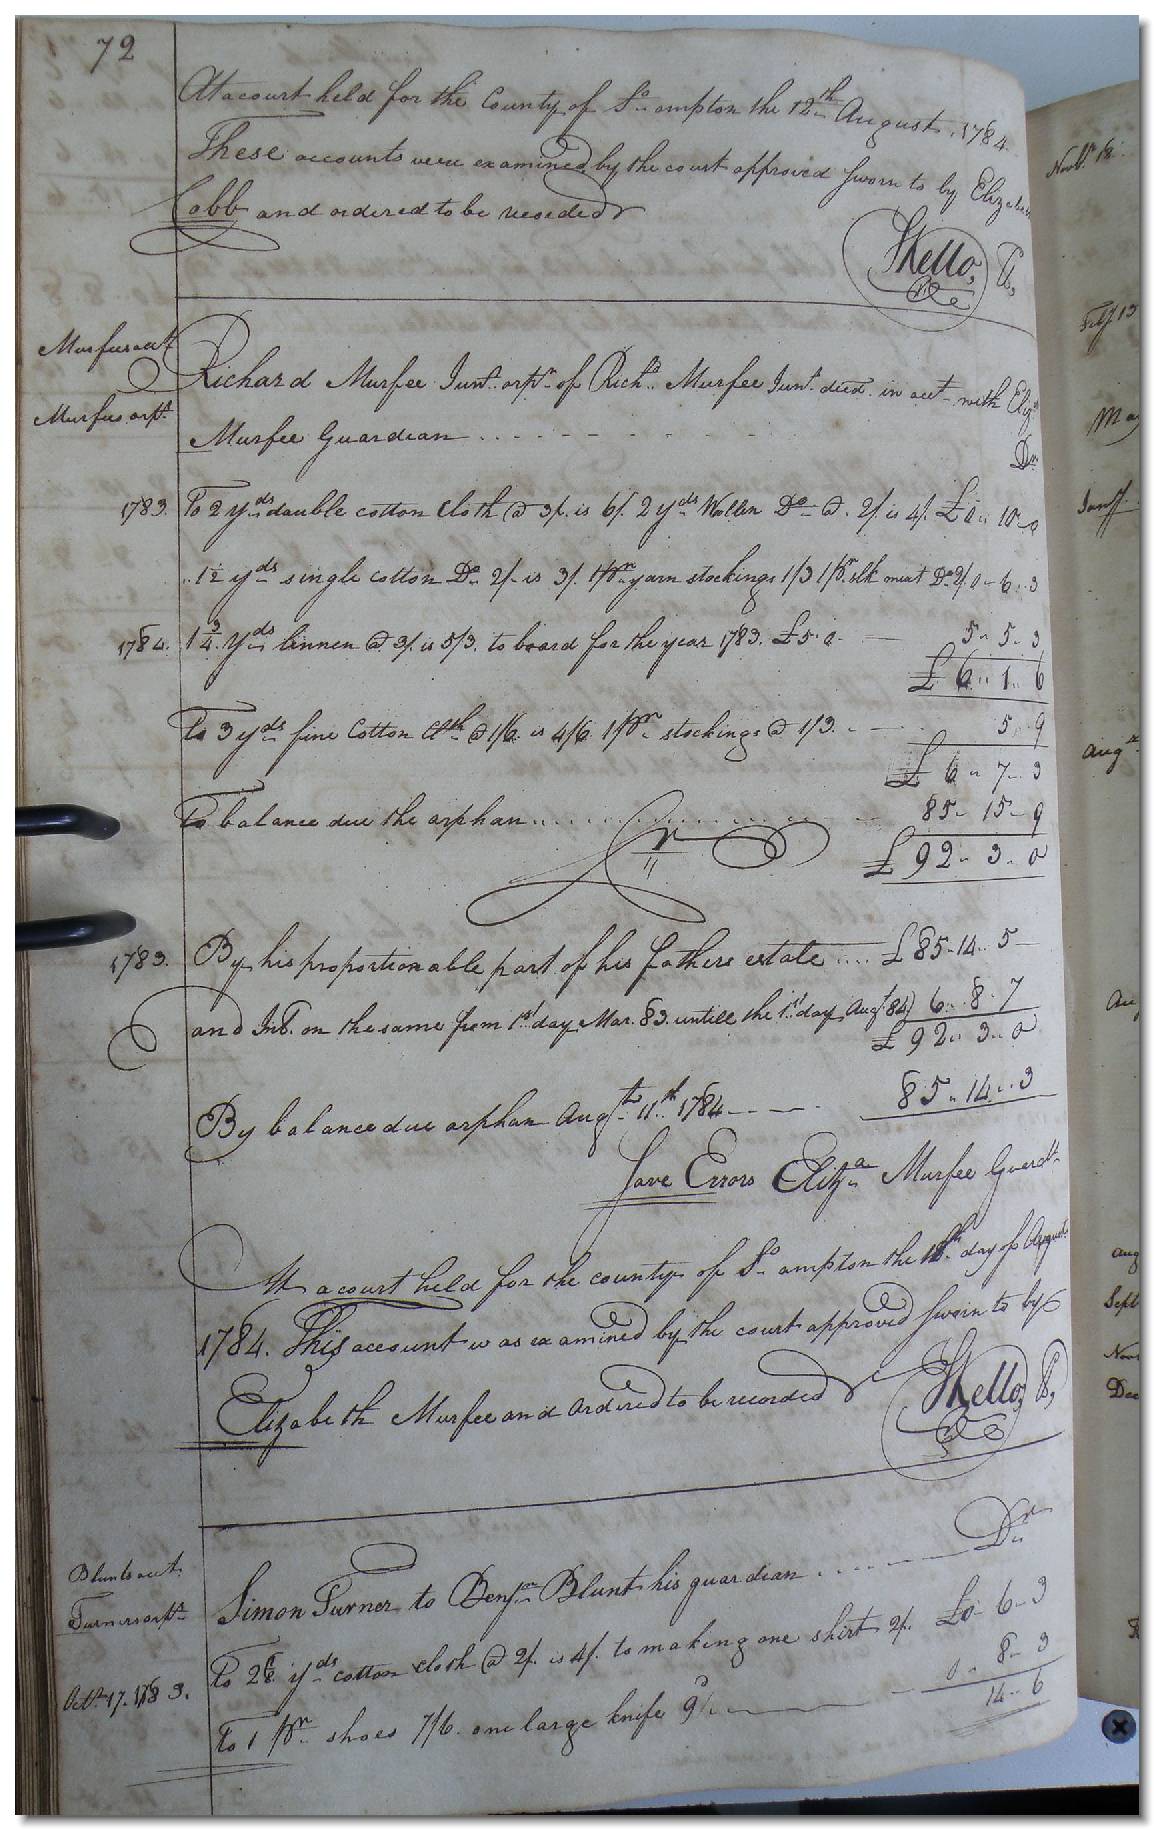 72
At a court held for the County of So.ampton the 12th August 1784.
These accounts were examined by the court approved sworn to by Elizabeth
Cobb and ordered to be recorded
Skello,
Murfees acct.
Richard Murfee Junr. orpn. of Richd. Murfee Junr. decd. in acct. with Eliza
Murfees orpt.
Murfee Guardian
Dr
1783. To 2 yds double cotton cloth @ 3/. is 6/. 2 yds Wollen Do @. 2/. is 4/. £ 0 " 10 - 0
" 1½ yds single cotton Do. 2/- is 3/. 1 pr. yarn stockings 1/3 1 pr. Do 2/ 0 - 6 - 3
1784. 1¾ yds linnen @ 3/. is 5/3. to board for the year 1783. £5. 0. 5 " 5 - 3
£ 6 " 1 " 6
To 3 yds fine Cotton Cth @ 1/6. is 4/6. 1 pr. stockings @ 1/3. 5 " 9
£ 6 " 7 - 3
To balance due the orphan 85 - 15 - 9
Cr
£ 92 " 3 - 0
1783. By his proportionable part of his fathers estate .... £ 85 - 14 - 5
and Int. on the same from 1st day Mar. 83. untill the 1st day Augt 84 6 " 8 - 7
£ 92 " 3 - 0
By balance due orphan Augt 11th 1784 85 " 14 - 3
Save Errors Eliza Murfee Guardn
At a court held for the county of So.ampton the day of August
1784. This account was examined by the court approved sworn to by
Elizabeth Murfee and ordered to be recorded
Skello,
Blunts acct.
Dr
Simon Turner to Benjn Blunt his guardian
Turners orpt.
To 2 yds cotton cloth @ 2/. is 4/. to making one shirt 2/. £0 - 6 - 3
Octr. 17. 1783. To 1 pr. shoes 7/6. one large knife 9d 0 " 8 - 3
14 - 6
Novr. 18.
Aug
Sept
Nov
Dec